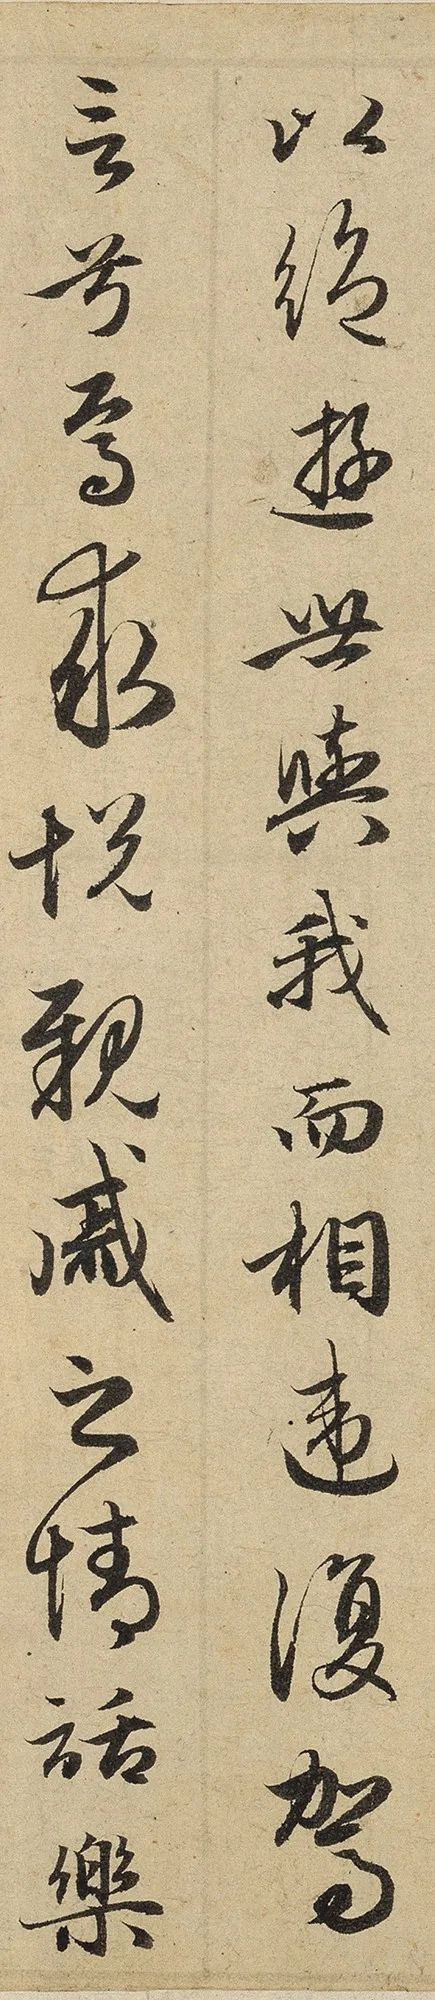 以絕遊世與我而相違復駕
言兮焉求悅親戚之情話樂